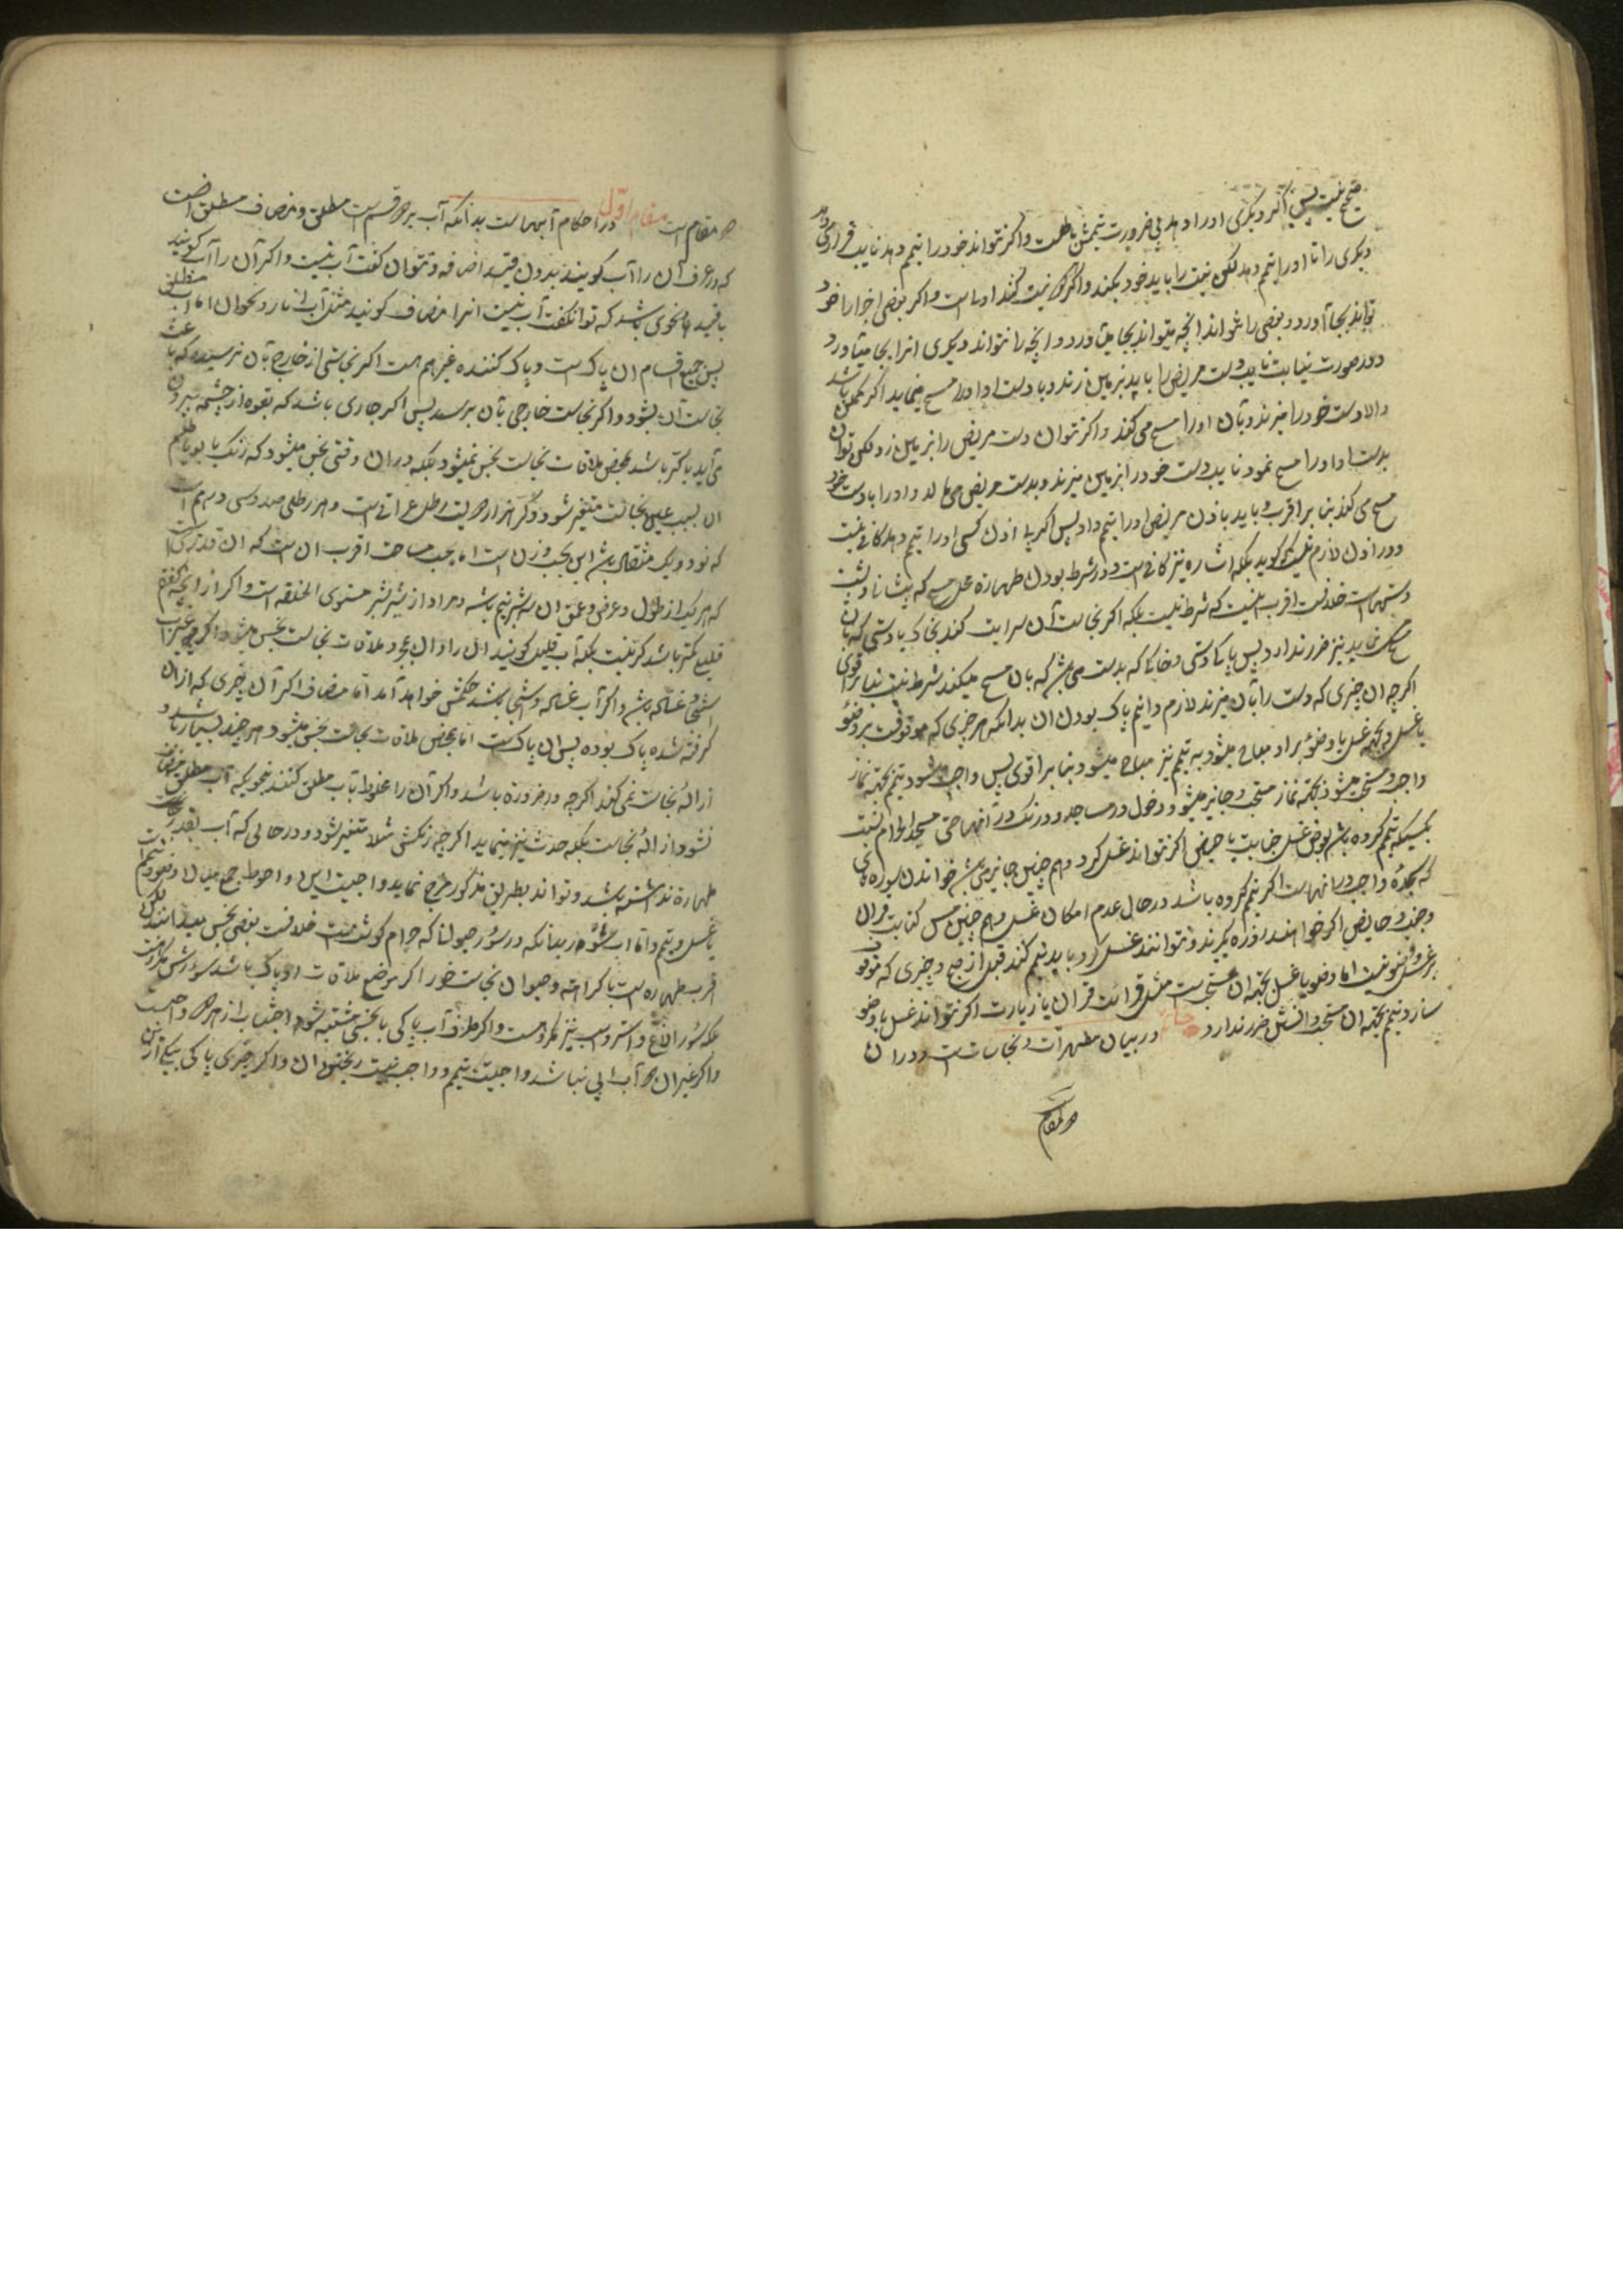 صحیح نیست پس اگر دیگری او را دهد بی ضرورت تیممش باطلست و اگر نتواند خود را تیمم دهد نایب قرار میدهد
دیگری را تا او را تیمم دهد لکن نیت را باید خود بکند و اگر هر دو نیت کنند اولی است و اگر بعضی اجزا را خود
تواند بجا آورد و بعضی را نتواند آنچه میتواند بجا میآورد و آنچه را نتواند دیگری آنرا بجا میآورد
و در صورت نیابت نایب دست مریض را باید بر زمین زند و با دست او او را مسح مینماید اگر ممکن باشد
والا دست خود را میزند و بآن او را مسح می کند و اگر نتوان دست مریض را بر زمین زد لکن توان
بدست او او را مسح نمود نایب دست خود را بر زمین میزند و بدست مریض می مالد و او را با دست خود
مسح می کند بنا بر اقرب و باید باذن مریض او را تیمم داد پس اگر بی اذن کسی او را تیمم دهد کافی نیست
و در اذن لازم نیست که گوید بلکه اشاره نیز کافی است و در شرط بودن طهارة محل مسح که پیشانی و پشت
دستهاست خلافست اقرب اینست که شرط نیست بلکه اگر نجاست آن سرایت کند بخاک یا دستی که بآن
مسح نماید نیز ضرر ندارد پس پاکی دستی و خاکی که بدست می باشد که بآن مسح میکند شرط نیست بنا بر اقوی
اگر چه آن چیزی که دست را بآن میزند لازم دانیم پاک بودن آن بدانکه هر چیزی که موقوفست بر وضو
یا غسل و بجهة غسل یا وضو بر او مباح میشود به تیمم نیز مباح میشود بنا بر اقوی پس واجب میشود تیمم بجهة نماز
واجب و مستحب میشود بجهة نماز مستحب و جایز میشود دخول در مساجد و درنگ در آنها حتی مسجد الحرام نسبت
بکسیکه تیمم کرده باشد بعوض غسل جنابت یا حیض اگر نتواند غسل کرد و هم چنین جایز می باشد خواندن سوره های
که سجدۀ واجب در آنهاست اگر تیمم کرده باشد در حال عدم امکان غسل و هم چنین مس کتابت قران
و جنب و حایض اگر خواهند روزه بگیرند و نتوانند غسل کرد باید تیمم کنند قبل از صبح و چیزی که موقوف
بر غسل و وضو نیست اما وضو یا غسل بجهة آن مستحبست مثل قرائت قران یا زیارت اگر نتواند غسل یا وضو
سازد تیمم بجهة آن مستحب و افضل ضرر ندارد خاتمه در بیان مطهرات و نجاسات است و در آن
دو مقام
دو مقام است مقام اول در احکام آبهاست بدانکه آب بر دو قسم است مطلق و مضاف مطلق آنست
که در عرف آن را آب گویند بدون قید اضافه و نتوان گفت آب نیست و اگر آن را آب گویند
با قید و بنحوی باشد که توان گفت آب نیست انرا مضاف گویند مثل آب انار و نحو آن اما آب مطلق
پس جمیع اقسام ان پاک است و پاک کننده غیر هم هست اگر نجاستی از خارج بآن نرسیده که باعث
نجاست آن بشود و اگر نجاست خارجی بآن برسد پس اگر جاری باشد که بقوه از چشمه بیرون
می آید یا کر باشد بمحض ملاقات نجاست نجس نمیشود بلکه در ان وقتی نجس میشود که رنگ یا بو یا طعم
ان بسبب عین نجاست متغیر شود و کر هزار و دویست رطل عراقی است و هر رطلی صد و سی درهم است
که نود و یک مثقال باشد این بحسب وزن است اما بحسب مساحت اقرب ان است که ان قدریست
که هر یک از طول و عرض و عمق ان سه شبر و نیم باشد و مراد از شبر شبر مستوی الخلقه است و اگر از آنچه گفتم
قلیل کمتر باشد کر نیست بلکه آب قلیل گویند ان را و ان بمجرد ملاقات نجاست نجس میشود اگر چه غیر آب
استنجا و غساله باشد و اگر آب غساله و استنجا باشد حکمش خواهد آمد اما مضاف اگر آن چیزی که از ان
گرفته شده پاک بوده پس ان پاک است اما بمحض ملاقات نجاست نجس میشود هر چند بسیار باشد و
ازالۀ نجاست نمی کند اگر چه در ضرورة باشد و اگر آن را مخلوط باب مطلق کنند بنحویکه آب مطلق مضاف
نشود ازالۀ نجاست بلکه حدث نیز مینماید اگر چه رنگش مثلا متغیر شود و در حالی که آب بقدر کفایت
طهارة نداشته باشد و تواند بطریق مذکور مزج نماید واجبست این و احوط جمع میان وضو و تیمم است
یا غسل و تیمم و اما اب سؤر بدانکه در سؤر حیوانا که حرام گوشت است خلافست بعضی نجس میدانند لکن
اقرب طهاره است با کراهة و حیوان نجاستخور اگر موضع ملاقات او پاک باشد سؤرش مکروهست
بلکه سؤر الاغ و استر و اسب نیز مکروهست و اگر ظرف آب پاکی با نجسی مشتبه شود اجتناب از هر دو واجبست
و اگر غیر ان دو آب ابی نباشد واجبست تیمم و واجب نیست ریختن ان و اگر چیزی پاکی بیکی از این